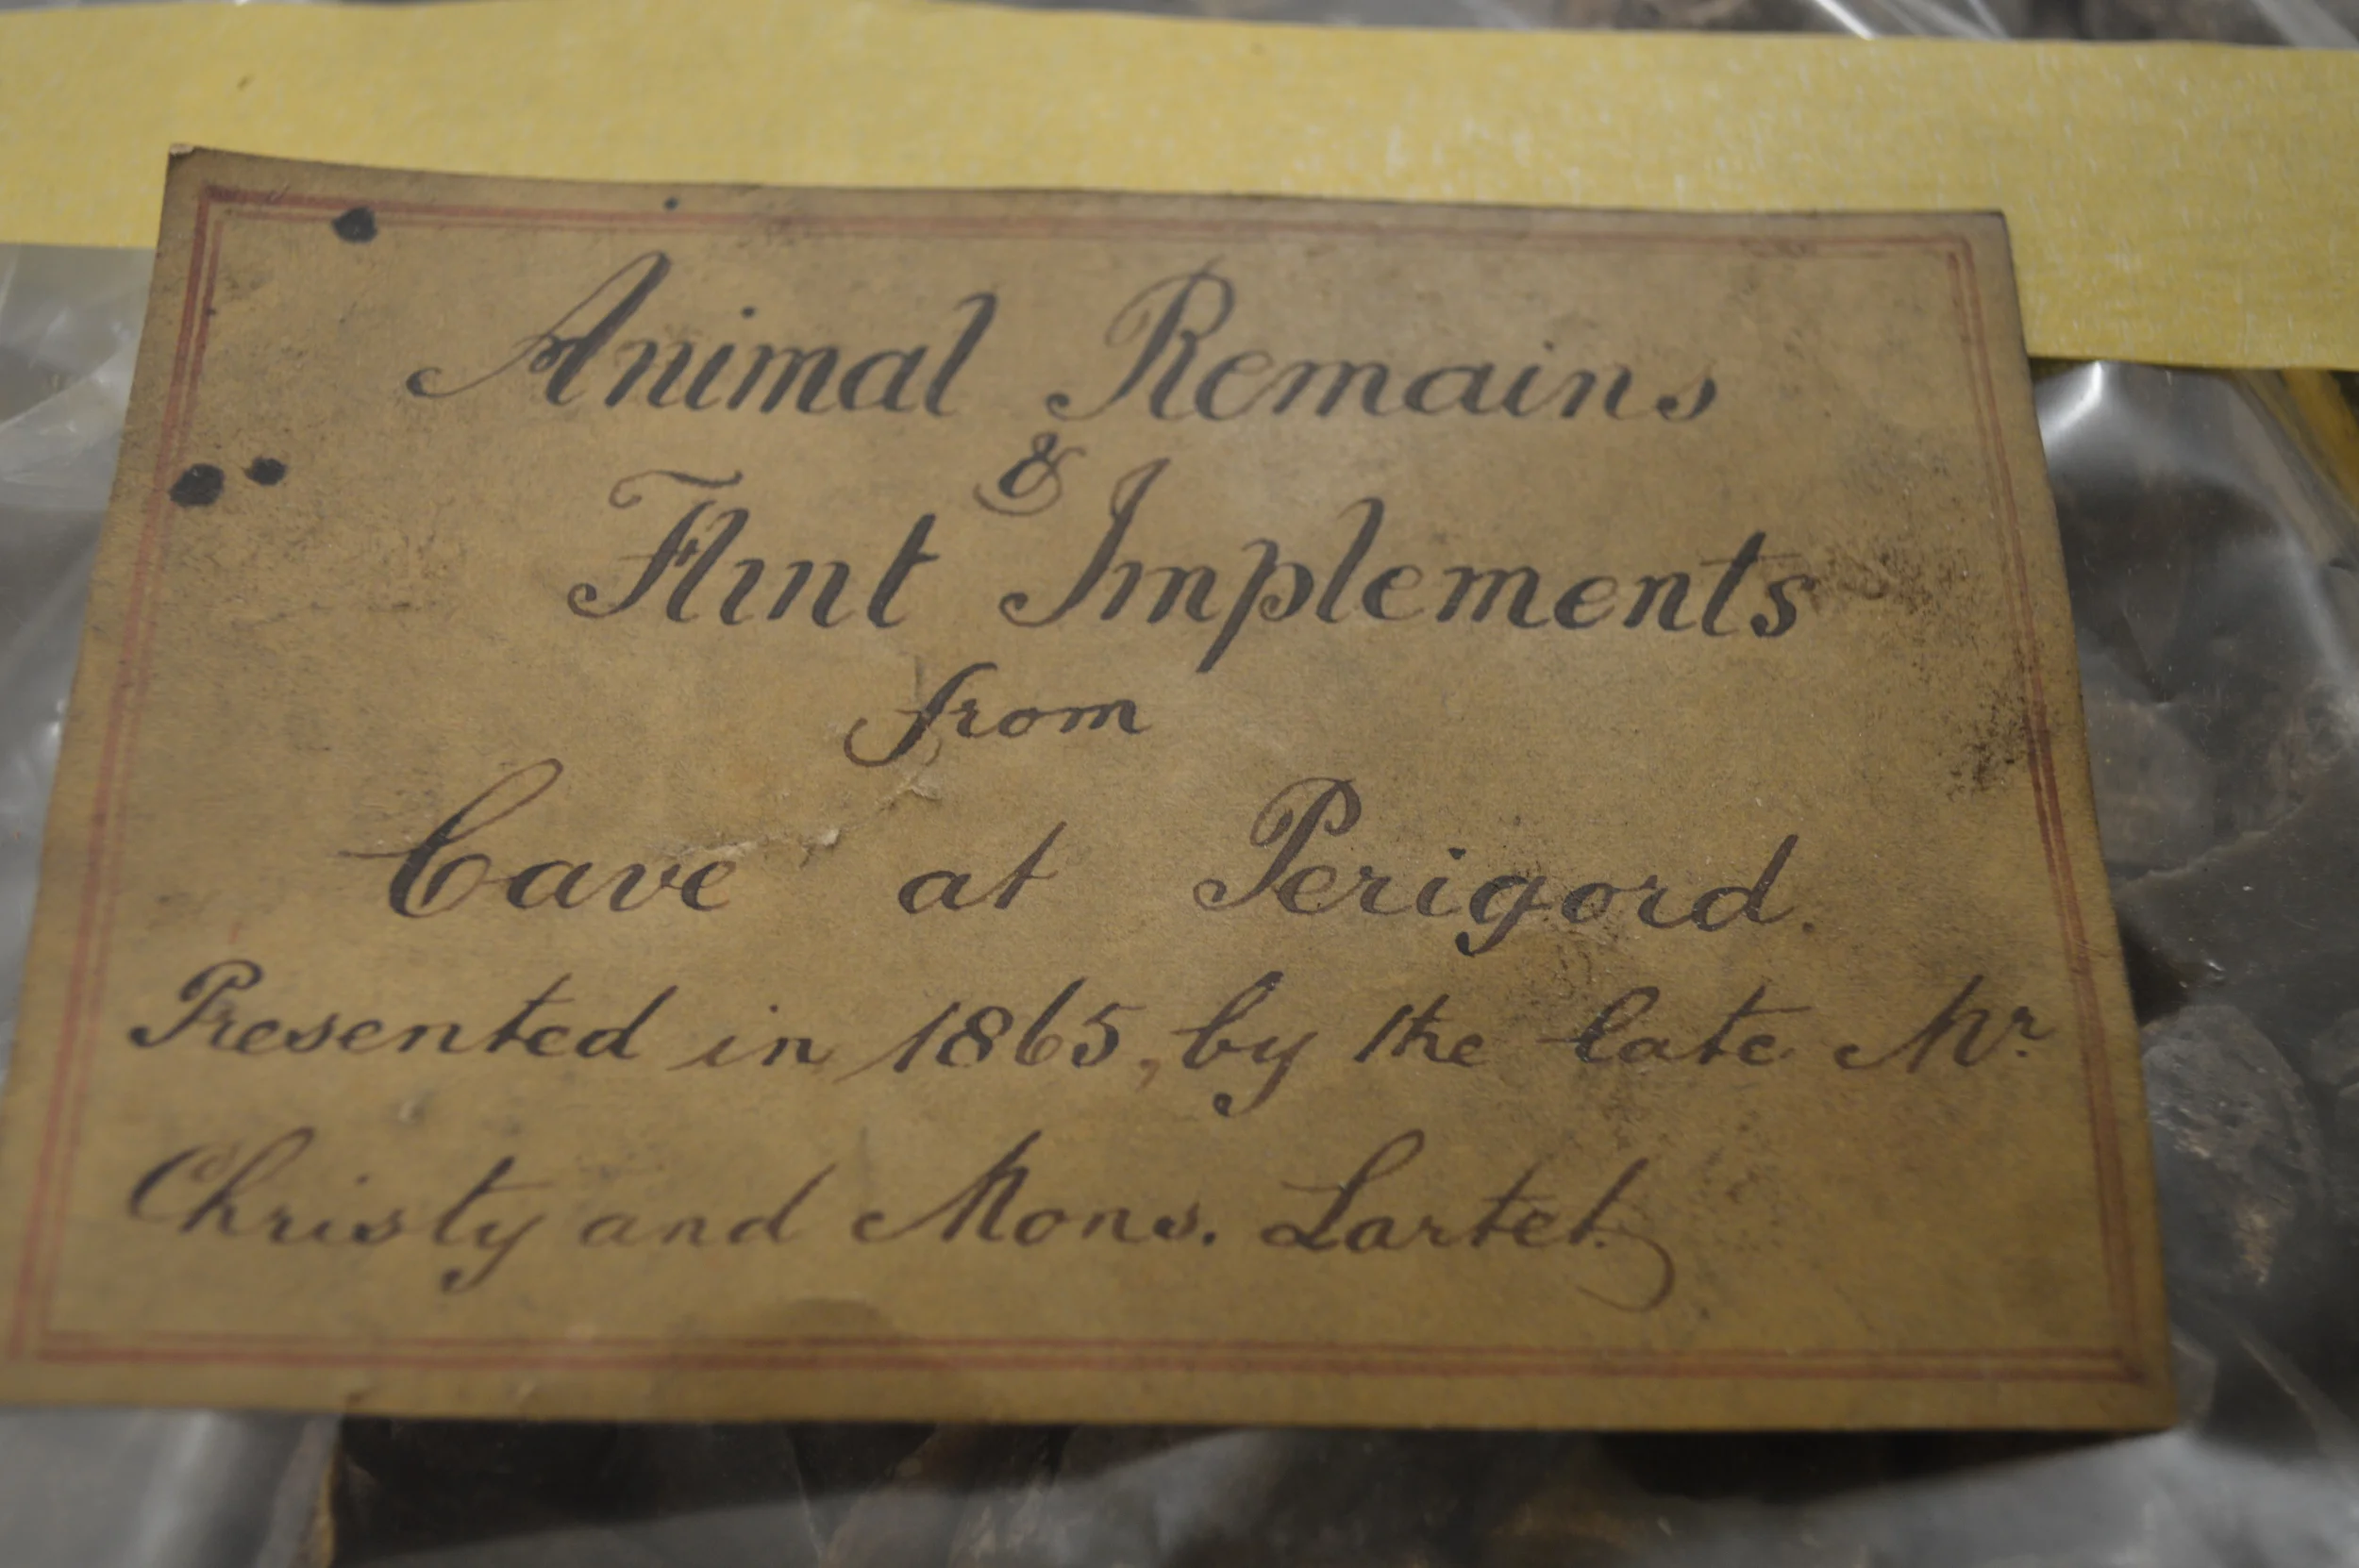 Animal Remains
&
Flint Implements
from
Cave at Perigord.
Presented in 1865, by the late Mr.
Christy and Mons. Lartet.